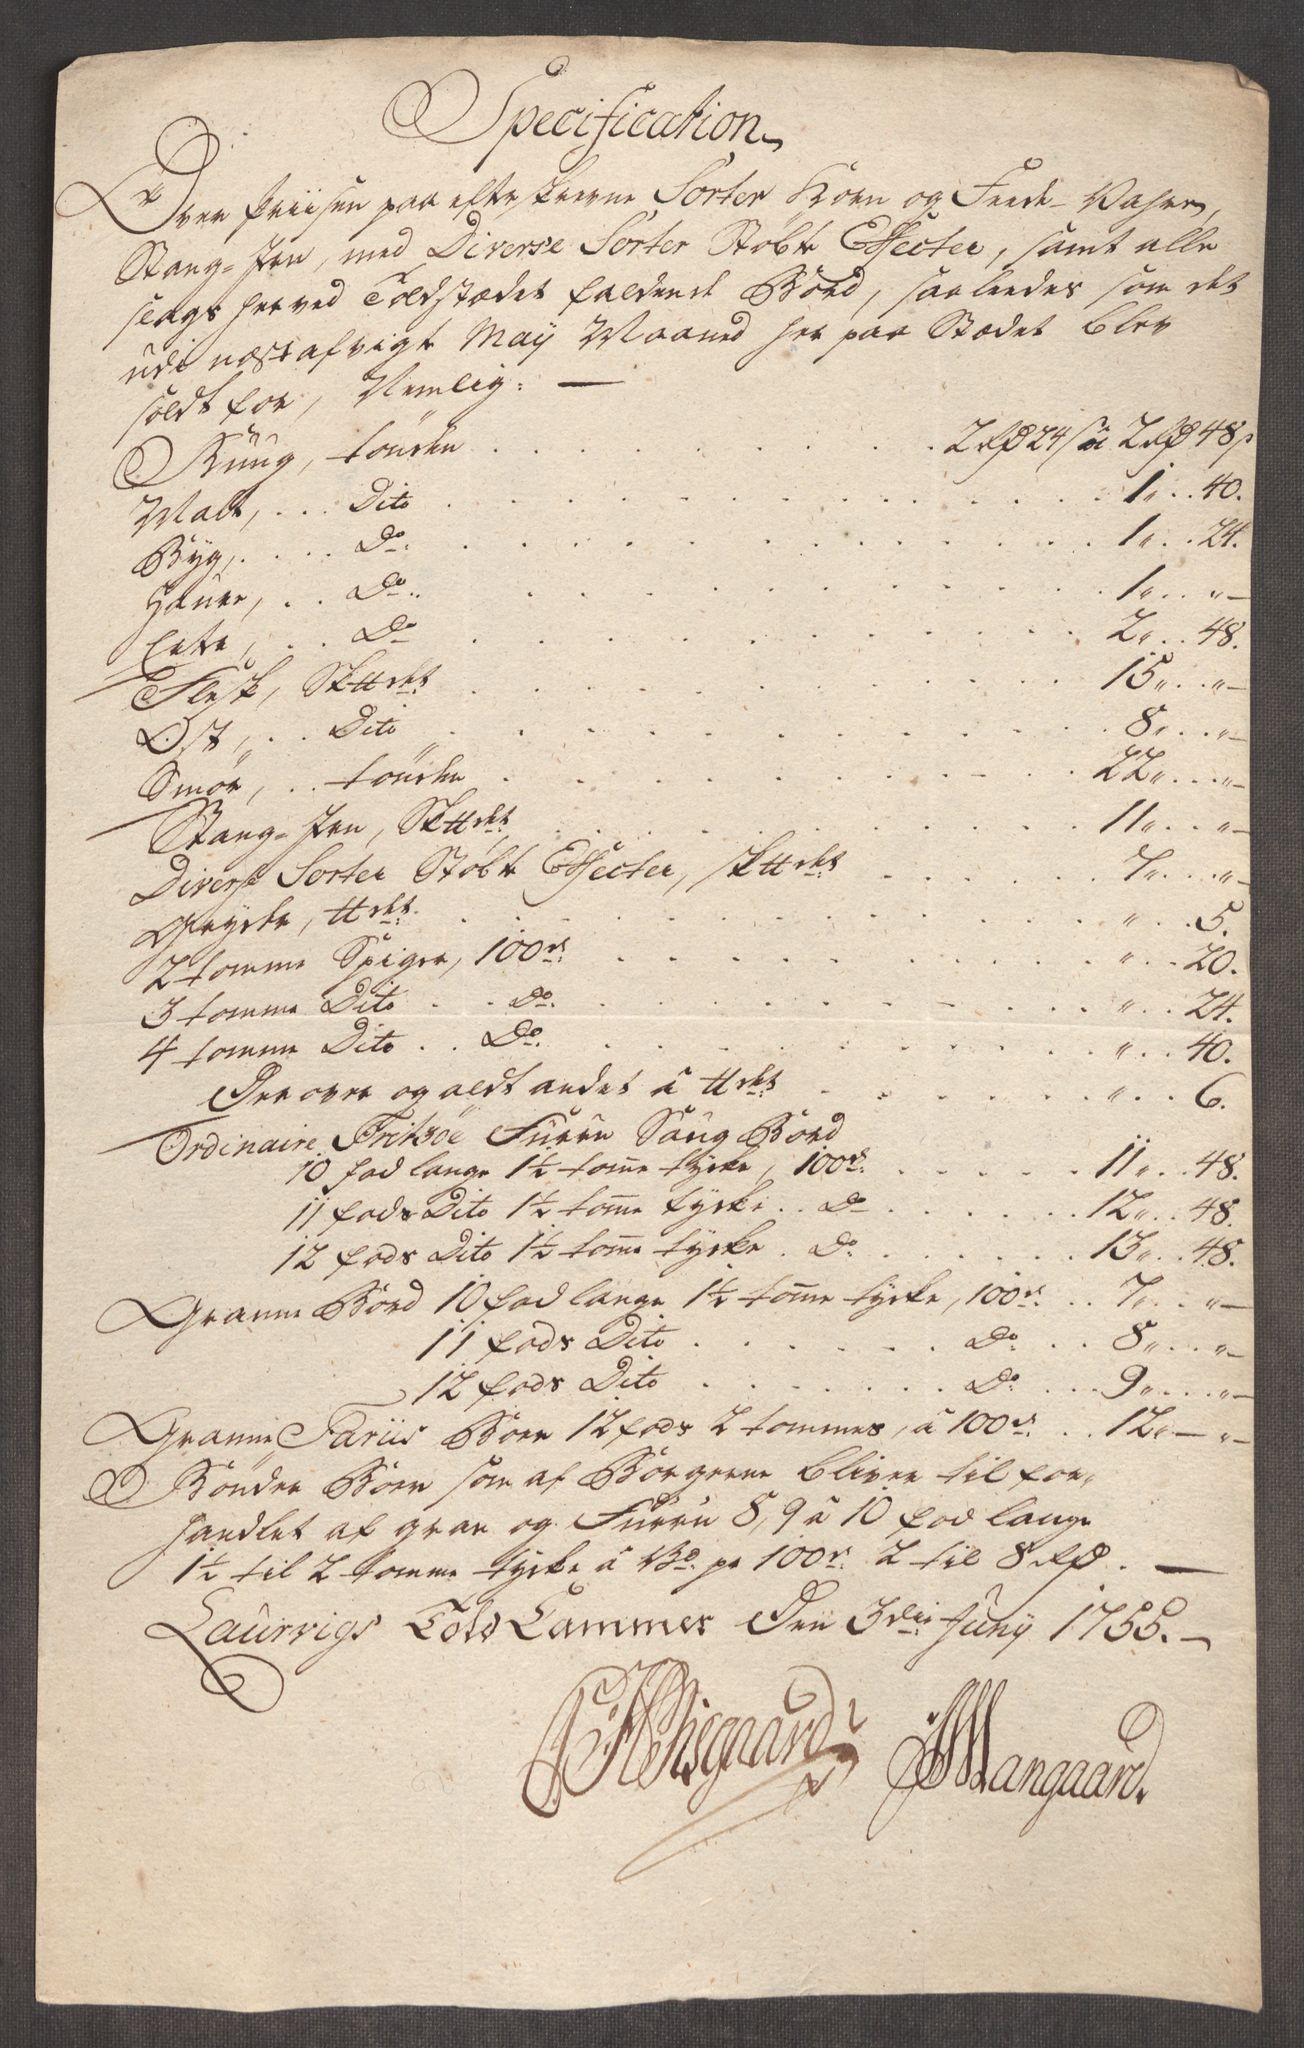 Specification
Over Priisen paa efterskrevne Sorter Korn og Feede-Vahrer,
Stang-Jern, med Diverse Sorter Støbte Effecter, samt alle
slags her ved Toldstædet faldende Bord, saaleedes som det
udi næstafvigt Maij Maaned her paa Stædet blev
soldt for, Nemlig: —
Rüug, tønden . . . 2 rd 24 s à 2 rd 48 s
Malt, . . . Dito . . . 1 „ . . 40.
Byg, . . . Do . . . 1 „ . . 24.
Haure, . . Do . . . 1 „ . . „ —
Erter, . . Do . . . 2 „ . . 48.
Flesk, Sk℔det . . . 15 „ . . „ —
Ost, . . Dito . . . 8 „ . . „ —
Smør, . . tønden . . . 22 „ . . „ —
Stang-Jern, Sk℔det . . . 11 „ . . „ —
Diverse Sorter Støbte Effecter, Sk℔det . . . 7 „ . . „ —
Gryder, ℔det . . . „ . . 5.
2 tomme Spiger, 100de . . . „ . . 20.
3 tomme Dito . . Do . . . „ . . 24.
4 tomme Dito . . Do . . . „ . . 40.
Der over og aldt andet à ℔det . . . „ . . 6.
Ordinaire Fritzöe Furru Saug Bord
10 fod lange 1½ tomme tycke, 100de . . . 11 „ . . 48.
11 fods Dito 1½ tomme tycke . . Do . . . 12 „ . . 48.
12 fods Dito 1½ tomme tycke . Do . . . 13 „ . . 48.
Granne Bord 10 fod lange 1½ tomme tycke, 100de . . 7 „ . . „ —
11 fods Dito . . . Do . . 8 „ . . „ —
12 fods Dito . . . Do . . . 9 „ . . „ —
Granne Fariis Border 12 fods 2 tommes, à 100de . . 12 „ — „ —
Bønder Border som af Borgerne bliver til for-
handlet af gran og Furru 8, 9 à 10 fod lange
1½ til 2 tomme tycke à Bd. pr 100de 2 til 8 rd. —
Laurvigs Told Cammer Den 3die Junij 1755. —
Wangaard.